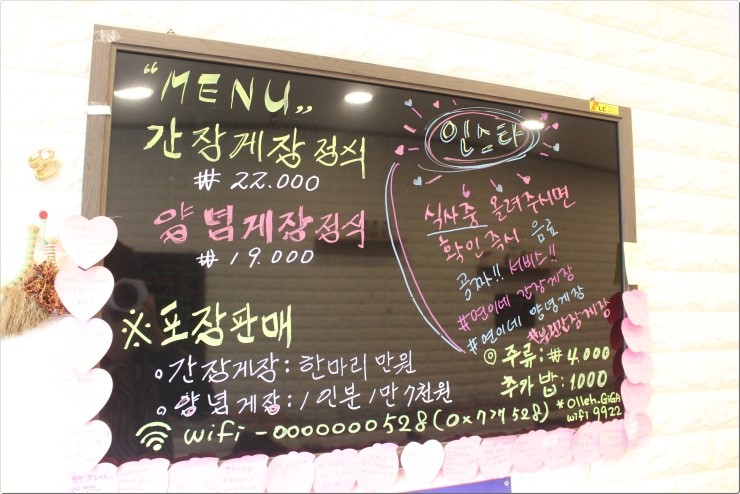 “MENU„
간장게장정식
₩ 22.000
양념게장정식
₩ 19.000
※포장판매
간장게장: 한마리 만원
양념게장: 1인분 1만7천원
wifi - 0000000528(0x7개528)
인스타
식사중 올려주시면
확인즉시 음료
공짜!! 서비스!!
#연이네 간장게장
#연이네 양념게장
◎ 주류: ₩4,000
추가밥: 1000
*Olleh_GiGA
wifi 9922